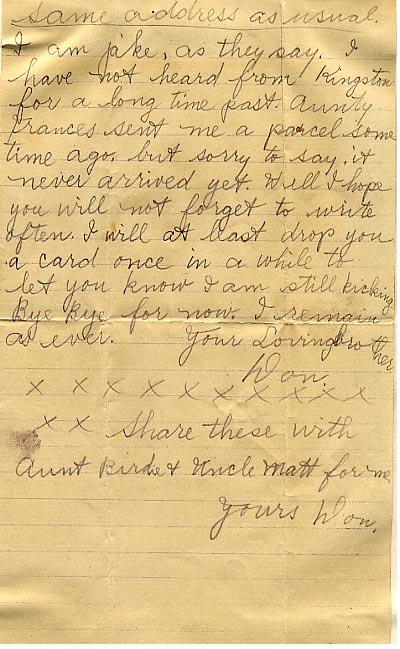 same address as usual.
I am jake, as they say. I
have not heard from Kingston
for a long time past. Aunty
Frances sent me a parcel some
time ago. but sorry to say. it
never arrived yet. Well I hope
you will not forget to write
often. I will at least drop you
a card once in a while to
let you know I am still kicking
Bye Bye for now. I remain
as ever. Your Loving brother
Don.
x x x x x x x x x x
x x Share these with
Aunt Birde & Uncle Matt for me
Yours Don.